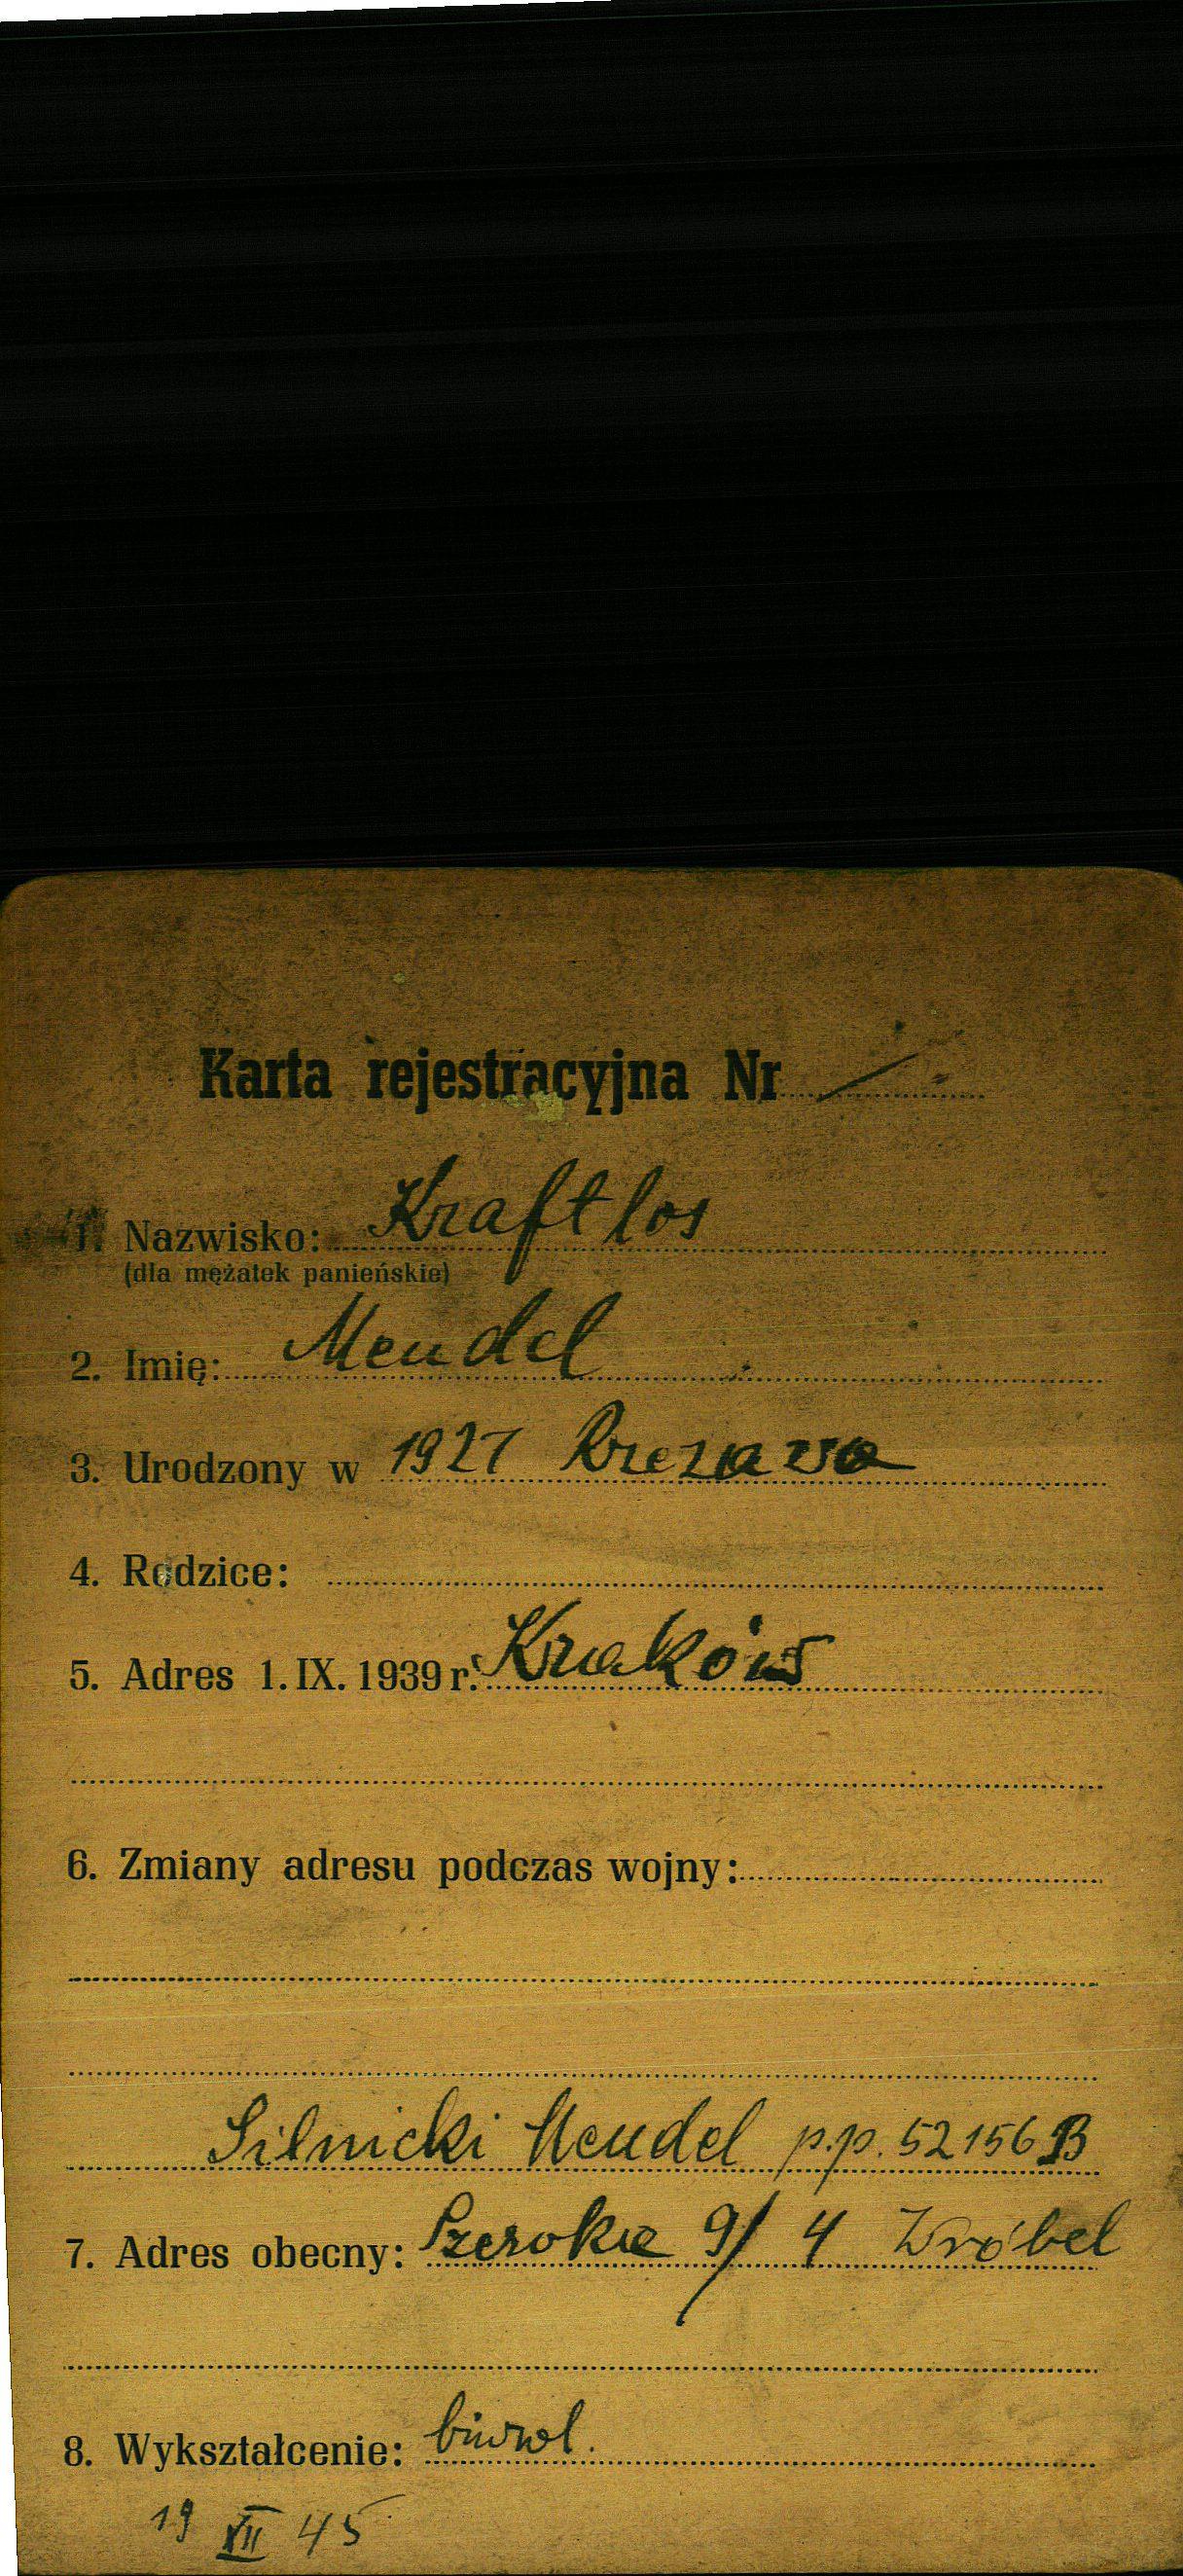 Karta rejestracyjna Nr
1. Nazwisko: Kraftlos
(dla mężatek panieńskie)
2. Imię: Mendel
3. Urodzony w 1927
4. Rodzice:
5. Adres 1. IX. 1939 r. Kraków
6. Zmiany adresu podczas wojny:
Silnicki Mendel p.p. 52156 B
7. Adres obecny: Szeroka 9/4 Wróbel
8. Wykształcenie:
19 XII 45